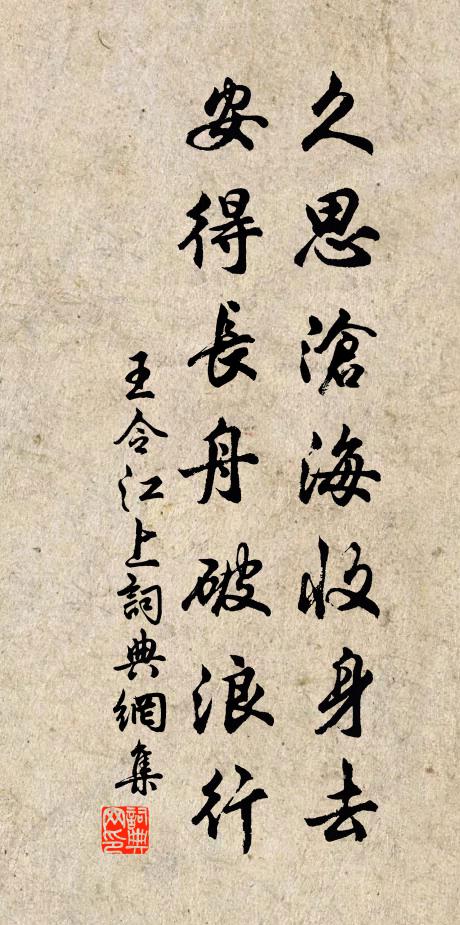 久思滄海收身去
安得長舟破浪行
王令江上詞典網集
詞典网印